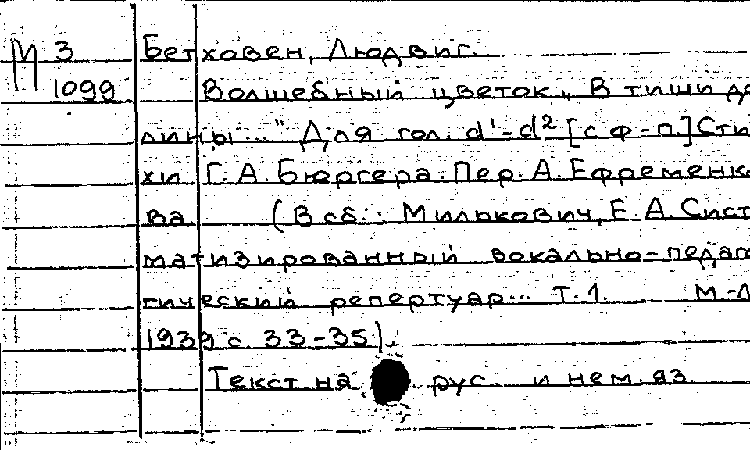 М 3 Бетховен, Людвиг.
1099 Волшебный цветок „В тиши до
лины..." Для гол. d'-d² [с ф-п] Сти
хи Г. А. Бюргера. Пер. А. Ефременко
ва (В сб.: Милькович, Е. А. Сист
матизированный вокально-педаг
гический репертуар... Т.1. М.-Л
1939 с. 33-35).
Текст на рус. и нем. яз.